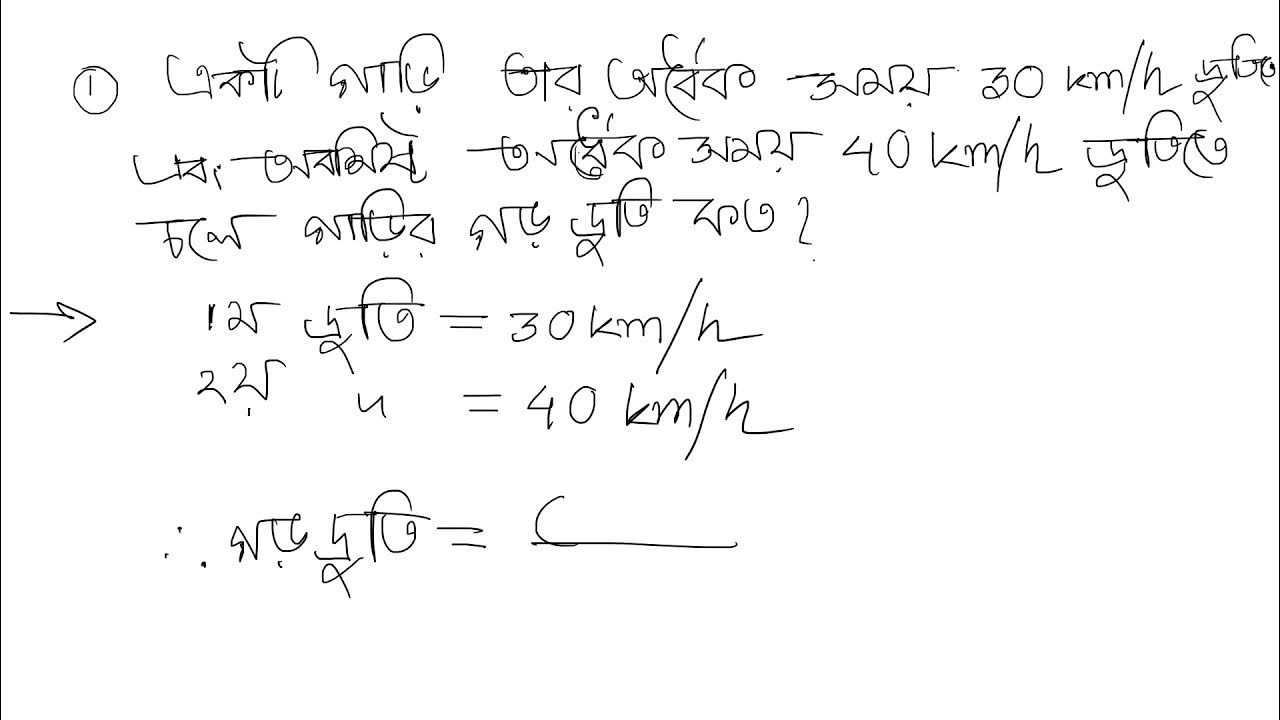 ① একটা গাড়ি তার অর্ধেক সময় 30 km/h দ্রুতিতে
এবং অবশিষ্ট অর্ধেক সময় 40 km/h দ্রুতিতে
চলে গাড়ির গড় দ্রুতি কত?
→ ১ম দ্রুতি = 30 km/h
২য় " = 40 km/h
∴ গড় দ্রুতি = (